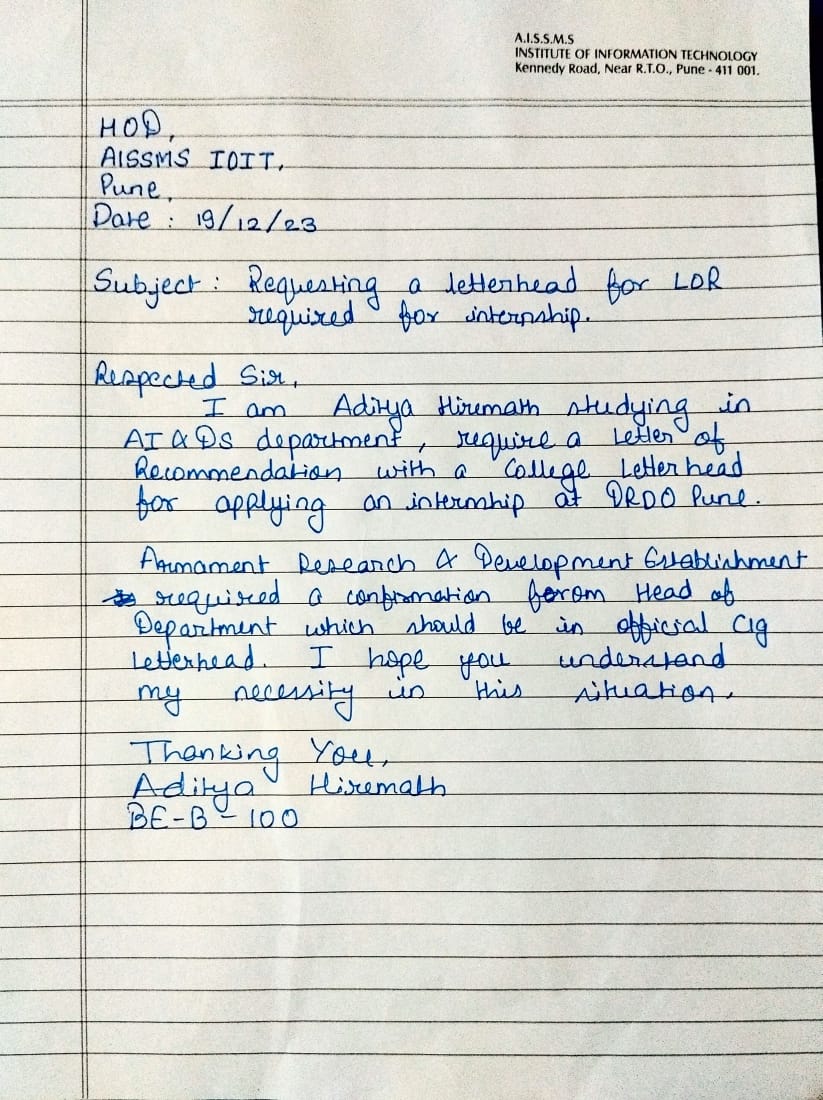 A.I.S.S.M.S
INSTITUTE OF INFORMATION TECHNOLOGY
Kennedy Road, Near R.T.O., Pune - 411 001.
HOD,
AISSMS IOIT,
Pune,
Date : 19/12/23
Subject : Requesting a letterhead for LOR
required for internship.
Respected Sir,
I am Aditya Hiremath studying in
AI & DS department, require a Letter of
Recommendation with a College Letterhead
for applying an internship at DRDO Pune.
Armament Research & Development Establishment
required a confromation forom Head of
Department which should be in official clg
Letterhead. I hope you understand
my necessity in this situation.
Thanking You,
Aditya Hiremath
BE-B-100